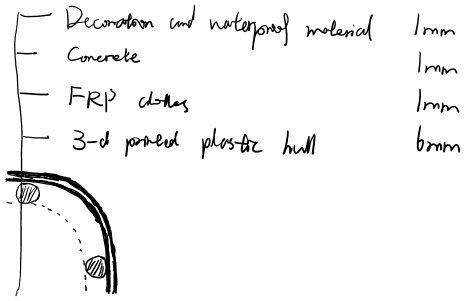 Decoration and waterproof material 1mm
Concrete 1mm
FRP clothes 1mm
3-d printed plastic hull 6mm